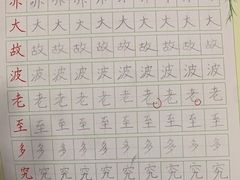 大大大大大大大大大大
故故故故故故故故故故
波波波波波波波波波波
老老老老老老老老老老
至至至至至至至至至至
多多多多多多多多多多
究究究究究究究究究究